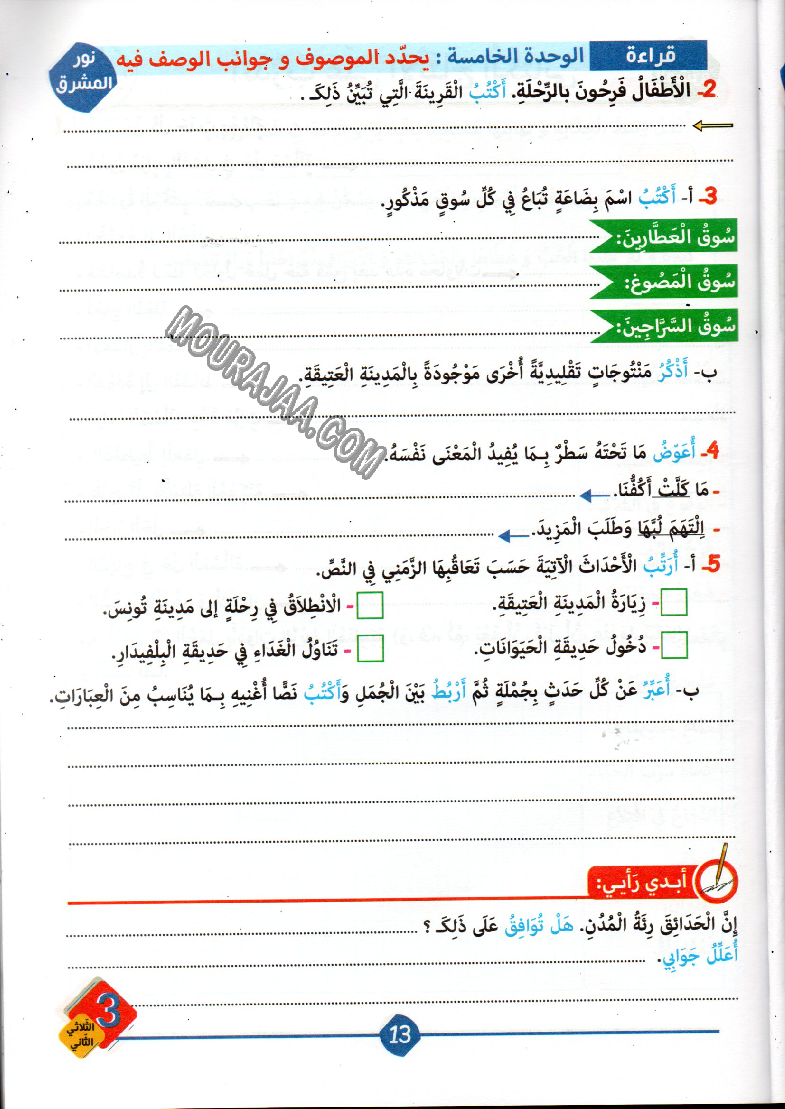 قراءة الوحدة الخامسة : يحدّد الموصوف و جوانب الوصف فيه
نور المشرق
2- الْأَطْفَالُ فَرِحُونَ بالرِّحْلَةِ. أَكْتُبُ الْقَرِينَةَ الَّتِي تُبَيِّنُ ذَلِكَ .
3- أ- أَكْتُبُ اسْمَ بِضَاعَةٍ تُبَاعُ فِي كُلِّ سُوقٍ مَذْكُورٍ.
سُوقُ الْعَطَّارِينَ:
سُوقُ الْمَصُوغِ:
سُوقُ السَّرَّاجِينَ:
ب- أَذْكُرُ مَنْتُوجَاتٍ تَقْلِيدِيَّةً أُخْرَى مَوْجُودَةً بِالْمَدِينَةِ الْعَتِيقَةِ.
4- أُعَوِّضُ مَا تَحْتَهُ سَطْرٌ بِمَا يُفِيدُ الْمَعْنَى نَفْسَهُ.
- مَا كَلَّتْ أَكُفُّنَا.
- اِلْتَهَمَ لُبَّهَا وَطَلَبَ الْمَزِيدَ.
5- أ- أُرَتِّبُ الْأَحْدَاثَ الْآتِيَةَ حَسَبَ تَعَاقُبِهَا الزَّمَنِي فِي النَّصِّ.
- زِيَارَةُ الْمَدِينَةِ الْعَتِيقَةِ. - الْانْطِلَاقُ فِي رِحْلَةٍ إلى مَدِينَةِ تُونِسَ.
- دُخُولُ حَدِيقَةِ الْحَيَوَانَاتِ. - تَنَاوُلُ الْغَدَاءِ فِي حَدِيقَةِ الْبِلْفِيدَارِ.
ب- أُعَبِّرُ عَنْ كُلِّ حَدَثٍ بِجُمْلَةٍ ثُمَّ أَرْبُطُ بَيْنَ الْجُمَلِ وَأَكْتُبُ نَصًّا أُغْنِيهِ بِمَا يُنَاسِبُ مِنَ الْعِبَارَاتِ.
أبدي رَأيي:
إِنَّ الْحَدَائِقَ رِئَةُ الْمُدُنِ. هَلْ تُوَافِقُ عَلَى ذَلِكَ ؟
أُعَلِّلُ جَوَابِي.
3
الثلاثي
الثاني
13
MOURAJAA.COM